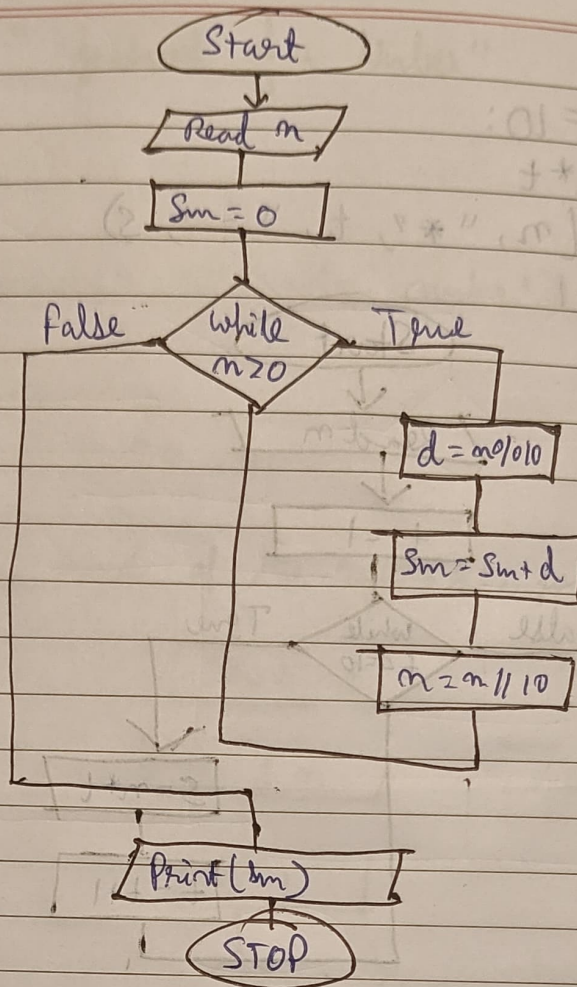 Start
Read n
Sm = 0
while
n>0
False
True
d = n%10
Sm = Sm + d
n = n // 10
Print (Sm)
STOP